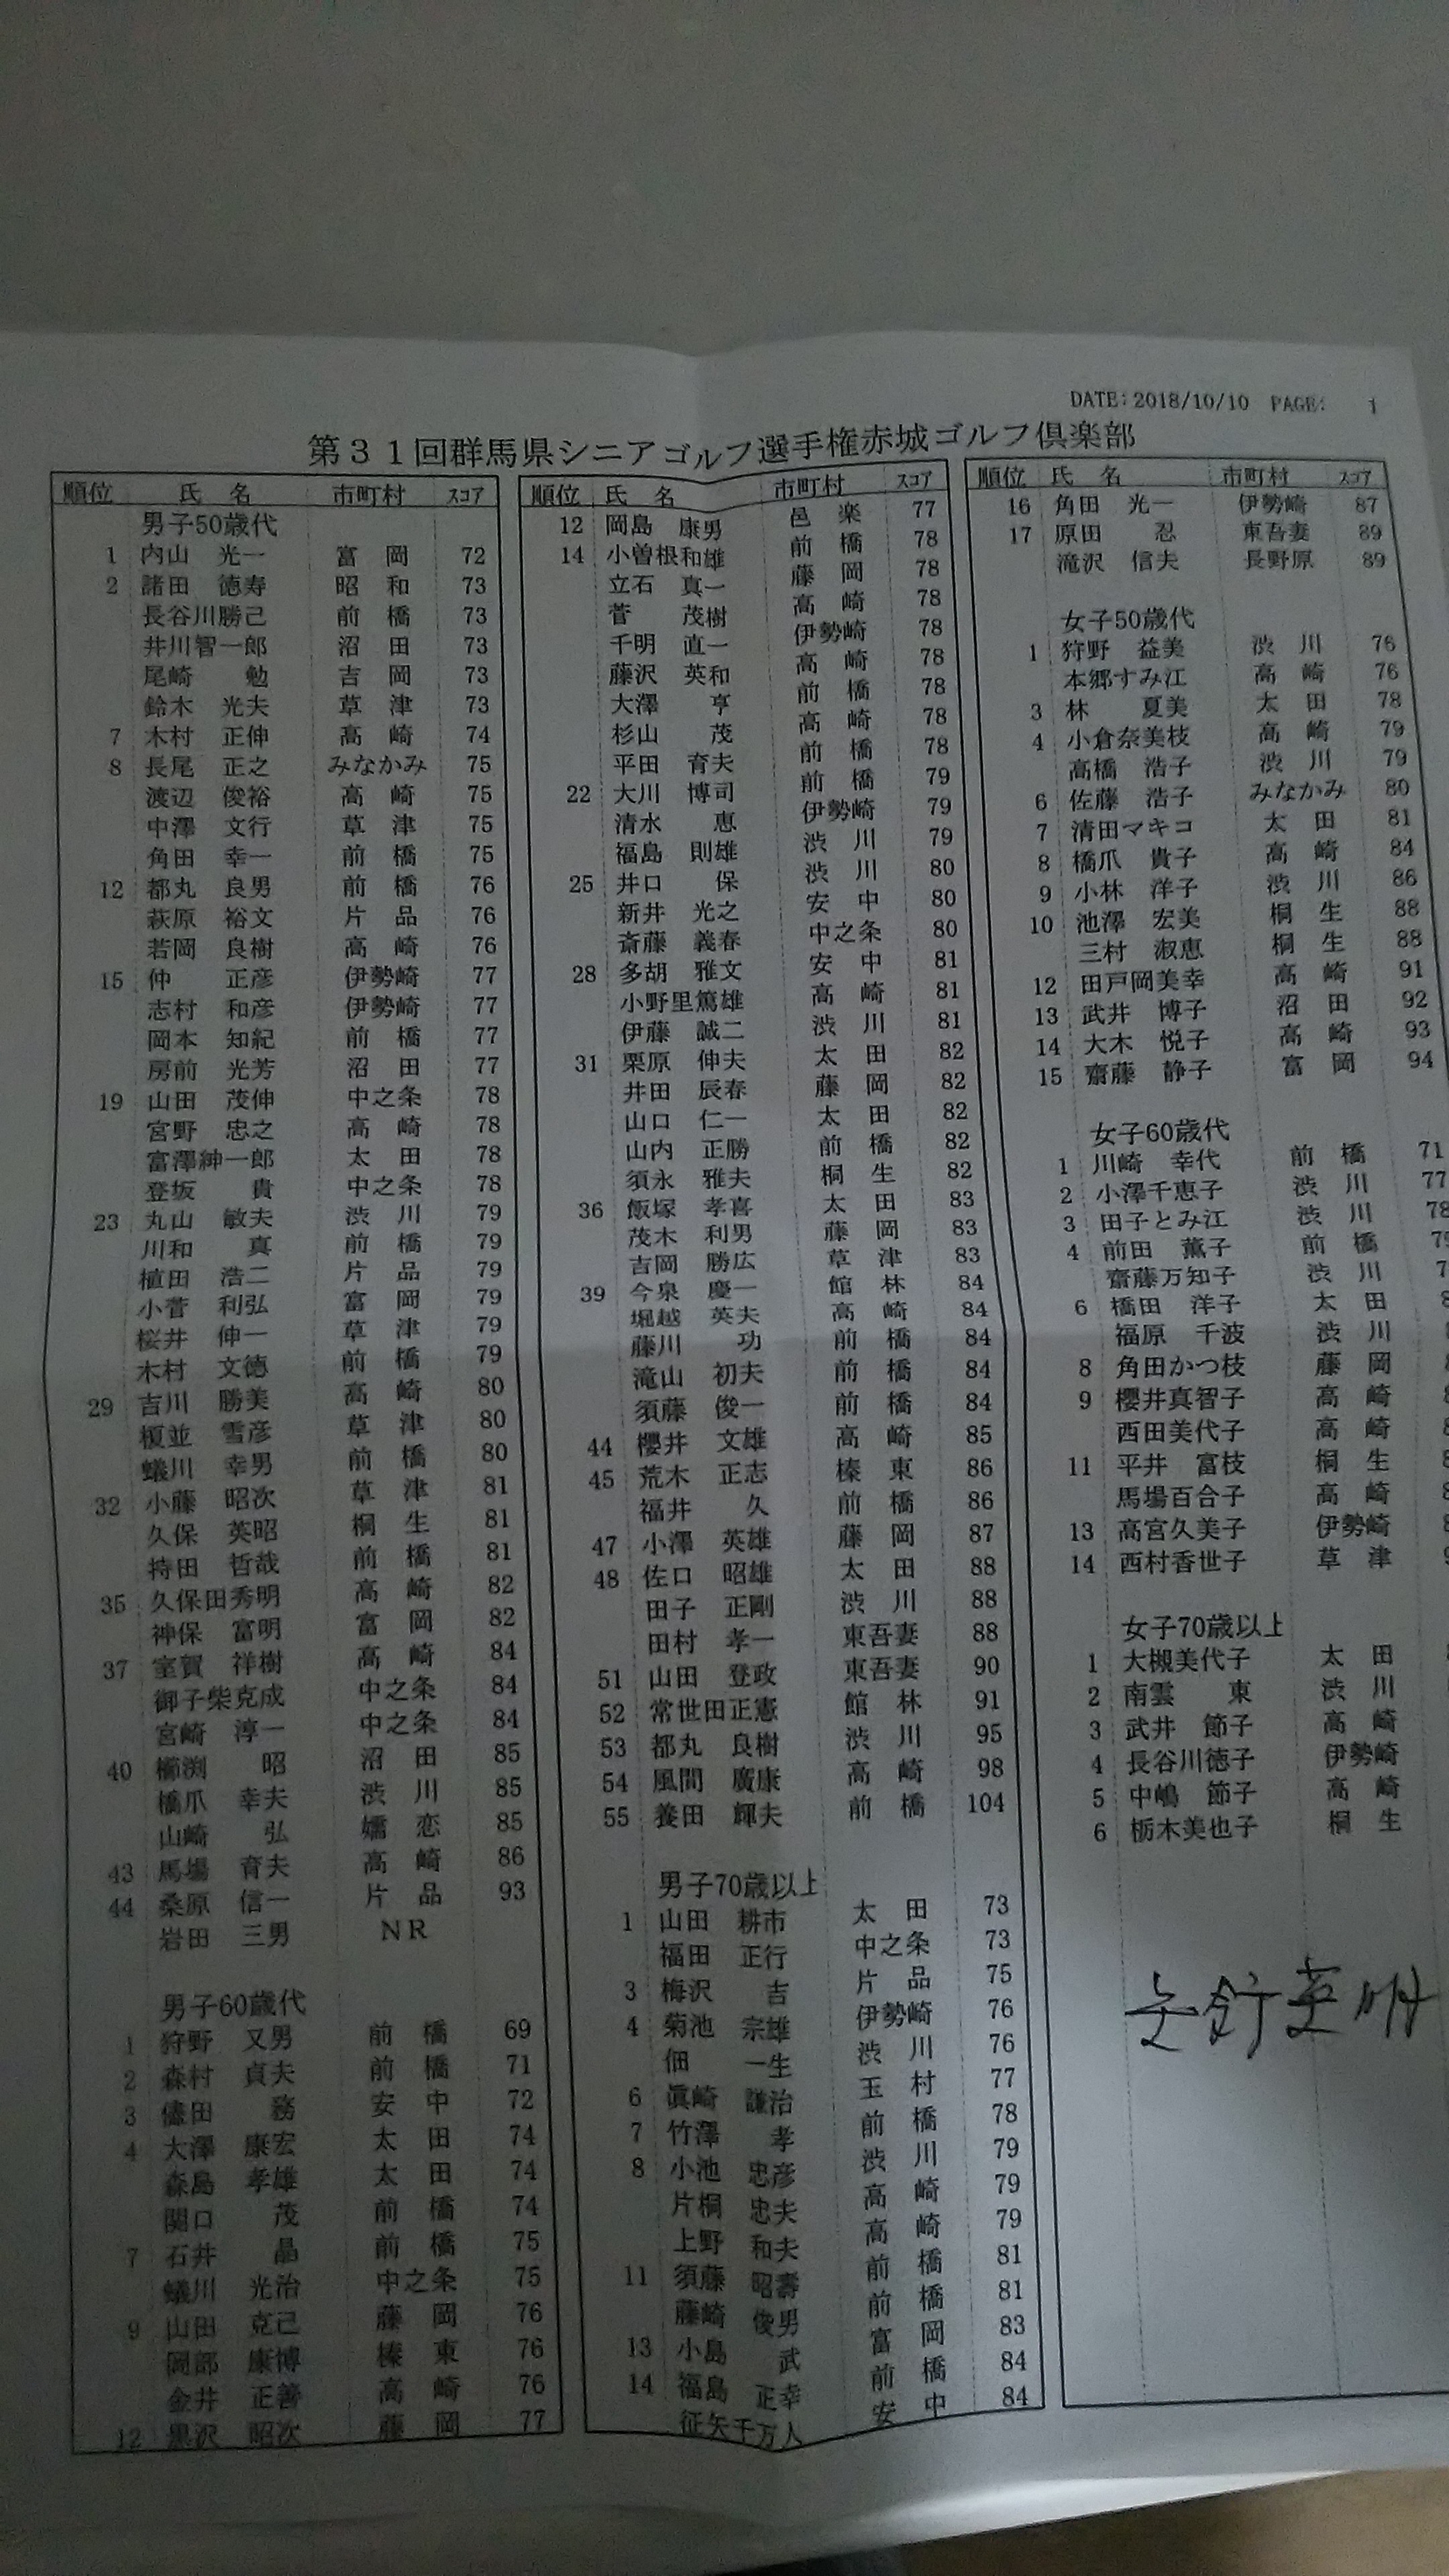 DATE:2018/10/10 PAGE: 1
第31回群馬県シニアゴルフ選手権赤城ゴルフ倶楽部
順位 氏名 市町村 スコア
男子50歳代
1 内山 光一 富岡 72
2 諸田 徳寿 昭和 73
長谷川勝己 前橋 73
井川智一郎 沼田 73
尾崎 勉 吉岡 73
鈴木 光夫 草津 73
7 木村 正伸 高崎 74
8 長尾 正之 みなかみ 75
渡辺 俊裕 高崎 75
中澤 文行 草津 75
角田 幸一 前橋 75
12 都丸 良男 前橋 76
萩原 裕文 片品 76
若岡 良樹 高崎 76
15 仲 正彦 伊勢崎 77
志村 和彦 伊勢崎 77
岡本 知紀 前橋 77
房前 光芳 沼田 77
19 山田 茂伸 中之条 78
宮野 忠之 高崎 78
富澤紳一郎 太田 78
登坂 貴 中之条 78
23 丸山 敏夫 渋川 79
川和 真 前橋 79
植田 浩二 片品 79
小菅 利弘 富岡 79
桜井 伸一 草津 79
木村 文徳 前橋 79
29 吉川 勝美 高崎 80
榎並 雪彦 草津 80
蟻川 幸男 前橋 80
32 小藤 昭次 草津 81
久保 英昭 桐生 81
持田 哲哉 前橋 81
35 久保田秀明 高崎 82
神保 富明 富岡 82
37 室賀 祥樹 高崎 84
御子柴克成 中之条 84
宮崎 淳一 中之条 84
40 櫛渕 昭 沼田 85
橋爪 幸夫 渋川 85
山崎 弘 嬬恋 85
43 馬場 育夫 高崎 86
44 桑原 信一 片品 93
岩田 三男 NR
男子60歳代
1 狩野 又男 前橋 69
2 森村 貞夫 前橋 71
3 儘田 務 安中 72
4 大澤 康宏 太田 74
森島 孝雄 太田 74
関口 茂 前橋 74
7 石井 晶 前橋 75
蟻川 光治 中之条 75
9 山田 克己 藤岡 76
岡部 康博 榛東 76
金井 正善 高崎 76
12 黒沢 昭次 藤岡 77
順位 氏名 市町村 スコア
12 岡島 康男 邑楽 77
14 小曽根和雄 前橋 78
立石 真一 藤岡 78
菅 茂樹 高崎 78
千明 直一 伊勢崎 78
藤沢 英和 高崎 78
大澤 亨 前橋 78
杉山 茂 高崎 78
平田 育夫 前橋 78
22 大川 博司 前橋 79
清水 恵 伊勢崎 79
福島 則雄 渋川 79
25 井口 保 渋川 80
新井 光之 安中 80
斎藤 義春 中之条 80
28 多胡 雅文 安中 81
小野里篤雄 高崎 81
伊藤 誠二 渋川 81
31 栗原 伸夫 太田 82
井田 辰春 藤岡 82
山口 仁一 太田 82
山内 正勝 前橋 82
須永 雅夫 桐生 82
36 飯塚 孝喜 太田 83
茂木 利男 藤岡 83
吉岡 勝広 草津 83
39 今泉 慶一 館林 84
堀越 英夫 高崎 84
藤川 功 前橋 84
滝山 初夫 前橋 84
須藤 俊一 前橋 84
44 櫻井 文雄 高崎 85
45 荒木 正志 榛東 86
福井 久 前橋 86
47 小澤 英雄 藤岡 87
48 佐口 昭雄 太田 88
田子 正剛 渋川 88
田村 孝一 東吾妻 88
51 山田 登政 東吾妻 90
52 常世田正憲 館林 91
53 都丸 良樹 渋川 95
54 風間 廣康 高崎 98
55 養田 輝夫 前橋 104
男子70歳以上
1 山田 耕市 太田 73
福田 正行 中之条 73
3 梅沢 吉 片品 75
4 菊池 宗雄 伊勢崎 76
佃 一生 渋川 76
6 眞崎 謙治 玉村 77
7 竹澤 孝 前橋 78
8 小池 忠彦 渋川 79
片桐 忠夫 高崎 79
上野 和夫 高崎 79
11 須藤 昭壽 前橋 81
藤崎 俊男 前橋 81
13 小島 武 富岡 83
14 福島 正幸 前橋 84
征矢千万人 安中 84
順位 氏名 市町村 スコア
16 角田 光一 伊勢崎 87
17 原田 忍 東吾妻 89
滝沢 信夫 長野原 89
女子50歳代
1 狩野 益美 渋川 76
本郷すみ江 高崎 76
3 林 夏美 太田 78
4 小倉奈美枝 高崎 79
高橋 浩子 渋川 79
6 佐藤 浩子 みなかみ 80
7 清田マキコ 太田 81
8 橋爪 貴子 高崎 84
9 小林 洋子 渋川 86
10 池澤 宏美 桐生 88
三村 淑恵 桐生 88
12 田戸岡美幸 高崎 91
13 武井 博子 沼田 92
14 大木 悦子 高崎 93
15 齋藤 静子 富岡 94
女子60歳代
1 川崎 幸代 前橋 71
2 小澤千恵子 渋川 77
3 田子とみ江 渋川 78
4 前田 薫子 前橋
齋藤万知子 渋川
6 橋田 洋子 太田
福原 千波 渋川
8 角田かつ枝 藤岡
9 櫻井真智子 高崎
西田美代子 高崎
11 平井 富枝 桐生
馬場百合子 高崎
13 高宮久美子 伊勢崎
14 西村香世子 草津
女子70歳以上
1 大槻美代子 太田
2 南雲 東 渋川
3 武井 節子 高崎
4 長谷川徳子 伊勢崎
5 中嶋 節子 高崎
6 栃木美也子 桐生